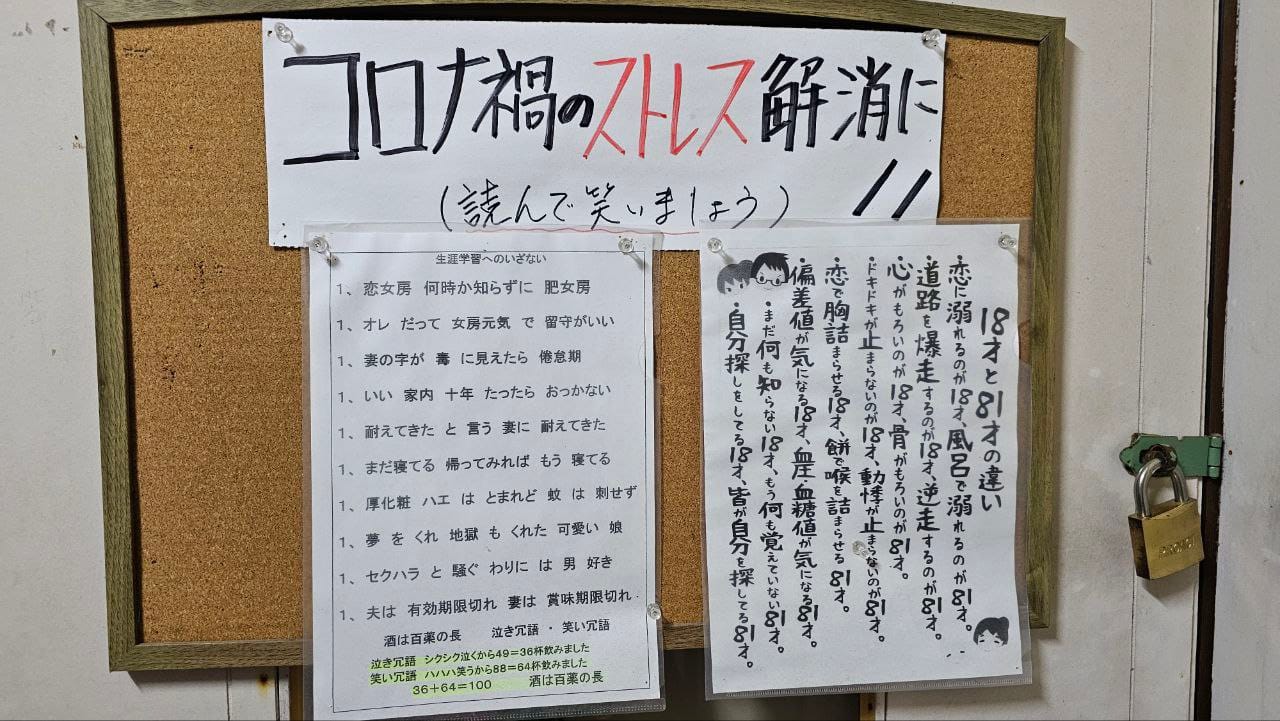 コロナ禍のストレス解消に!!
(読んで笑いましょう)
生涯学習へのいざない
1、恋女房 何時か知らずに 肥女房
1、オレ だって 女房元気 で 留守がいい
1、妻の字が 毒 に見えたら 倦怠期
1、いい 家内 十年 たったら おっかない
1、耐えてきた と 言う 妻に 耐えてきた
1、まだ寝てる 帰ってみれば もう 寝てる
1、厚化粧 ハエ は とまれど 蚊 は 刺せず
1、夢 を くれ 地獄 も くれた 可愛い 娘
1、セクハラ と 騒ぐ わりに は 男 好き
1、夫は 有効期限切れ 妻は 賞味期限切れ
酒は百薬の長 泣き冗語・笑い冗語
泣き冗語 シクシク泣くから49=36杯飲みました
笑い冗語 ハハハ笑うから88=64杯飲みました
36+64=100 酒は百薬の長
18才と81才の違い
・恋に溺れるのが18才、風呂で溺れるのが81才。
・道路を爆走するのが18才、逆走するのが81才。
・心がもろいのが18才、骨がもろいのが81才。
・ドキドキが止まらないのが18才、動悸が止まらないのが81才。
・恋で胸詰まらせる18才、餅で喉を詰まらせる81才。
・偏差値が気になる18才、血圧・血糖値が気になる81才。
・まだ何も知らない18才、もう何も覚えていない81才。
・自分探しをしてる18才、皆が自分を探してる81才。